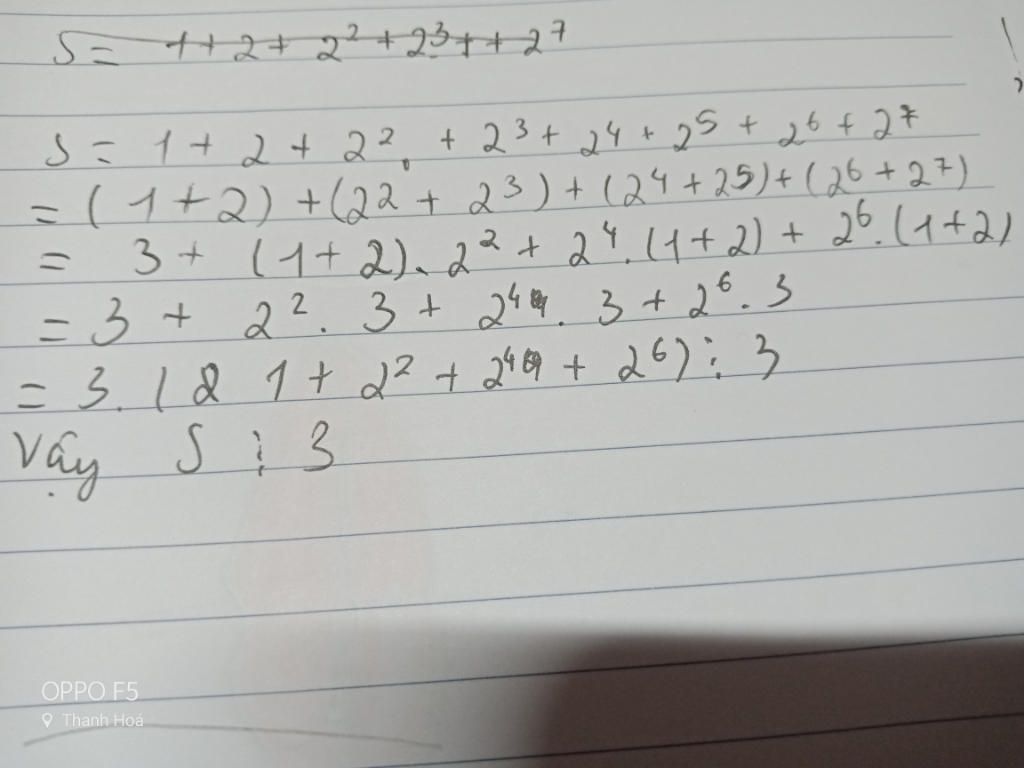 S = 1 + 2 + 2² + 2³ + + 2⁷
S = 1 + 2 + 2² + 2³ + 2⁴ + 2⁵ + 2⁶ + 2⁷
= (1 + 2) + (2² + 2³) + (2⁴ + 2⁵) + (2⁶ + 2⁷)
= 3 + (1 + 2) . 2² + 2⁴ . (1 + 2) + 2⁶ . (1 + 2)
= 3 + 2² . 3 + 2⁴ . 3 + 2⁶ . 3
= 3 . ( 1 + 2² + 2⁴ + 2⁶) ⋮ 3
Vậy S ⋮ 3
OPPO F5
Thanh Hoá